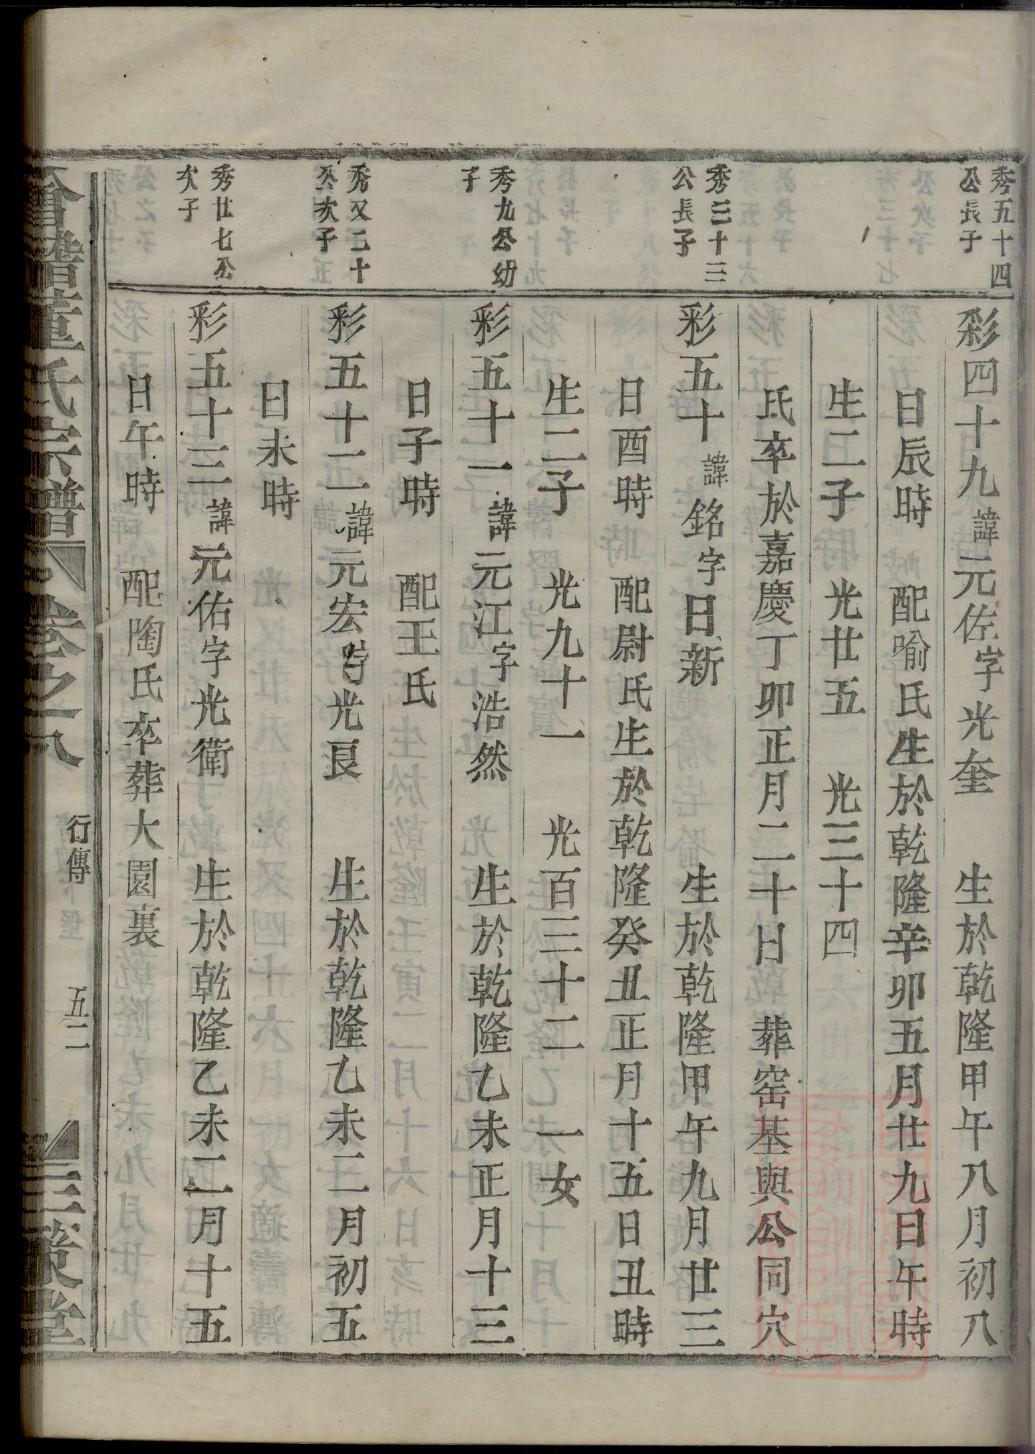 秀五十四
公長子
彩四十九諱元佐字光奎　生於乾隆甲午八月初八
日辰時　配喻氏生於乾隆辛卯五月廿九日午時
生二子　光廿五　光三十四
氏卒於嘉慶丁卯正月二十日　葬窑基與公同穴
秀三十三
公長子
彩五十諱銘字日新　生於乾隆甲午九月廿三
日酉時　配尉氏生於乾隆癸丑正月十五日丑時
生二子　光九十一　光百三十二　一女
秀九公幼
子
彩五十一諱元江字浩然　生於乾隆乙未正月十三
日子時　配王氏
秀又二十
公次子
彩五十二諱元宏時光良　生於乾隆乙未二月初五
日未時
秀廿七公
次子
彩五十三諱元佑字光衛　生於乾隆乙未二月十五
日午時　配陶氏卒葬大園裏
會譜董氏宗譜　卷之八　行傳　五二　三策堂